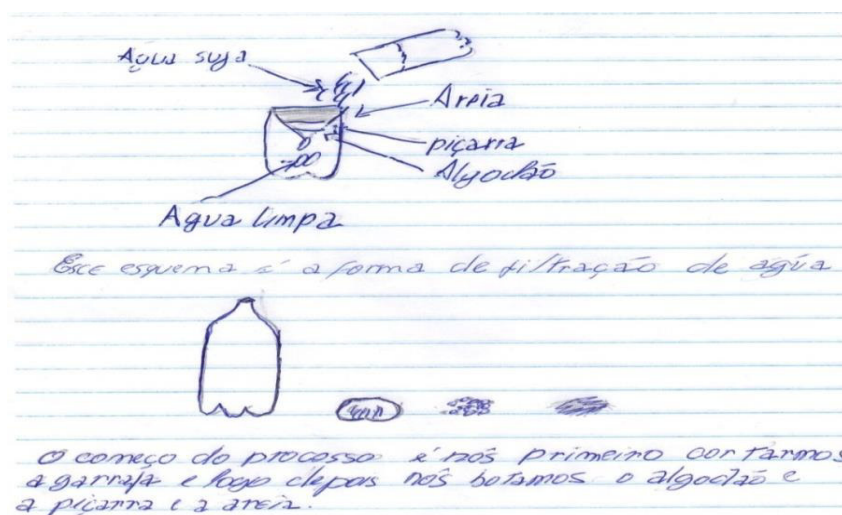 Água suja
Areia
piçarra
Algodão
Agua limpa
Esse esquema é a forma de filtração de agúa
O começo do processo é nós primeiro cortarmos
a garrafa e logo depois nós botamos o algodão e
a piçarra e a areia.